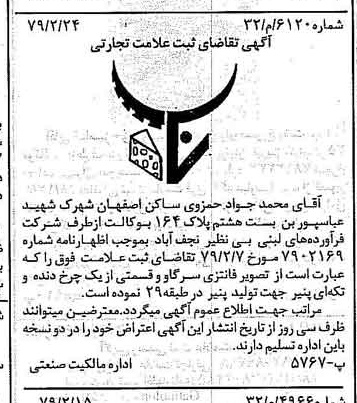 شماره ۶۱۲۰/م/۳۲ ۷۹/۲/۲۴
آگهی تقاضای ثبت علامت تجارتی
آقای محمد جواد حمزوی ساکن اصفهان شهرک شهید
عباسپور بن بست هشتم پلاک ۱۶۴ بوکالت از طرف شرکت
فرآورده‌های لبنی بی نظیر نجف آباد بموجب اظهارنامه شماره
۷۹۰۲۱۶۹ مورخ ۷۹/۲/۷ تقاضای ثبت علامت فوق را که
عبارت است از تصویر فانتزی سرگاو و قسمتی از یک چرخ دنده و
تکه‌ای پنیر جهت تولید پنیر در طبقه ۲۹ نموده است.
مراتب جهت اطلاع عموم آگهی میگردد. معترضین میتوانند
ظرف سی روز از تاریخ انتشار این آگهی اعتراض خود را در دو نسخه
باین اداره تسلیم دارند.
پ-۵۷۶۷ اداره مالکیت صنعتی
شماره ۴۹۶۶/م/۳۲ ۷۹/۲/۱۸